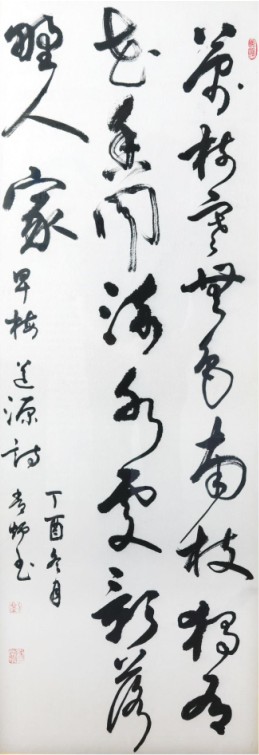 萬樹寒無色南枝獨有
花香聞流水處影落
野人家 早梅 道源詩
丁酉冬月
書